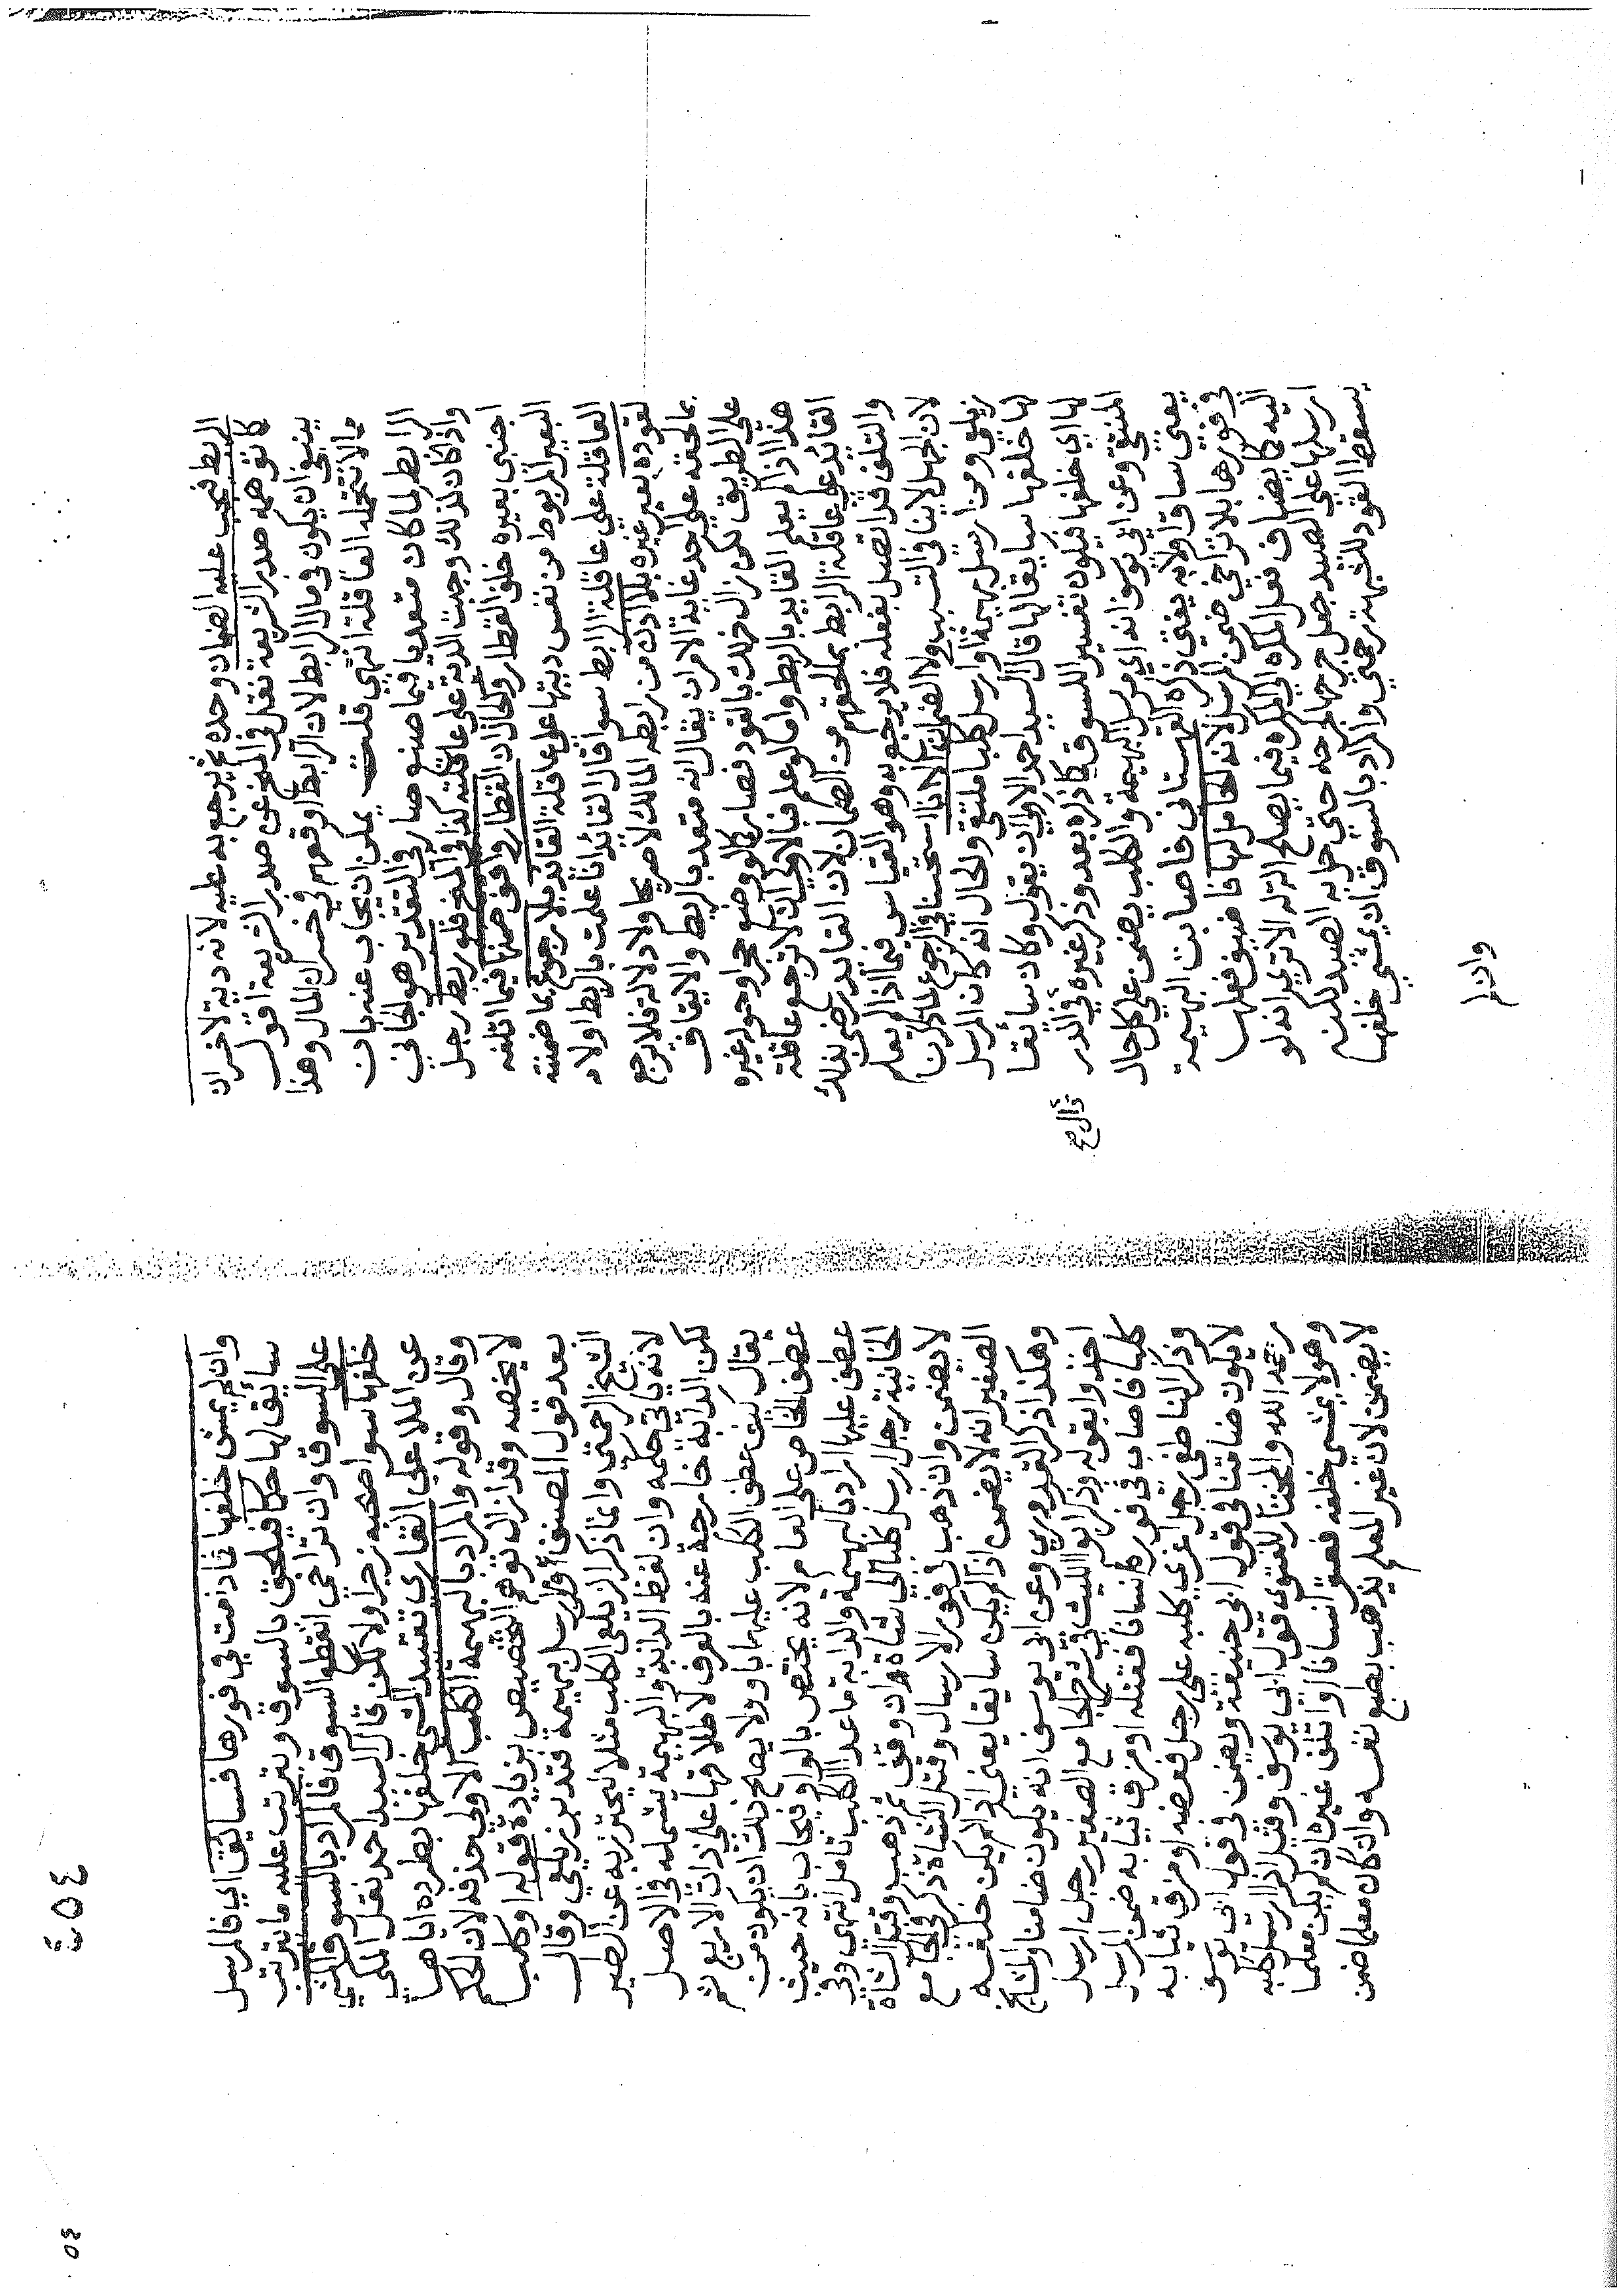 الربط فيجب عليه الضمان وحده ثم يرجع به عليه لانه دية لاخسران
كما توهمه صدر الشريعة نقتل في المنح عن صدر الشريعة اقول
ينبغي ان يكون في مال الرابط لان الرابط اوقعهم في خسران المال وهذا
مما لا تتحمله العاقلة انتهى قلت يمكن ان يجاب عنه بان
الرابط لما كان متعديا فيما صنع صار في التقدير هو الجاني
واذا كان كذلك وجبت الدية على عاقلته كذا في المنح فلو ربط رجل
اجنبي بعيره خلف القطار والحال ان القطار واقف ضمنها فيما اتلفه
البعير المربوط من نفس ديتها على عاقلة القائد بلا رجوع بما ضمنته
العاقلة على عاقلة الرابط سوا قال القائد انا علمت بالربط اولاد
لقوده بعير غيره بلا اذن من رابطه المالك لا صريحا ولا دلالة فلا يرجع
بما لحقه على احد غاية الامر ان يقال انه متعد بالربط والايقاف
على الطريق لكن زال ذلك بالقود فصار كما لو وضع حجرا وحوله غيره
هذا اذا لم يعلم القايد بالربط واما لو علم فبالاولى ان لا ترجع عاقلة
القائد على عاقلة الرابط بما لحقهم من الضمان لان القايد رضي بذلك
والتلف قد اتصل بفعله فلا يرجع به وهو القياس فيما اذا لم يعلم
لان الجهل لا ينافي التسبب ولا الضمان الا انا استحسنا في الرجوع لما ذكرنا
زيلعي ومن ارسل بهيمة او ارسل كلبا ملتقى والحال انه كان المرسل
لها خلفها سايقا لها قال السيد احمد الاولى ان يقول وكان سائقا
لها اي خلفها فيكون تفسير للسوق كما ذكره بعد وذكر غيره في الدر
المنتقى وعن ابي يوسف انه اي مرسل البهيمة والكلب يضمن على كل حال
يعني ساق اولا وبه يفتى ذكره القهستاني فاصابت البهيمة
في فورها بلا تراخي ضمن المرسل لانه الحامل لها فاضيف فعلها
اليه كما يضاف فعل المكره الى المكره فيما يصلح اله له الا ترى انه لو
ارسلها على الصيد جعل جرحها كجرحه حتى حل به الصيد لكنه
يسقط القود للشبهة رحمتي والمراد بالسوق ان يمشي خلفها
وان لم
قال صح
٤٥٤
وان لم يمش خلفها فما دامت في فورها فسائقا اي فالمرسل
سائق لها حكما فيلحق بالسوق ويترتب عليه ما يترتب
على السوق وان تراخى انقطع السوق فالمراد بالسوق المشي
خلفها سوا صحبه زجر اولا لكن قال السيد احمد نقل المكي
عن الملا علي القاري تقييد المشي خلفها بطرده اياها
وقال وقوله والمراد بالبهيمة الكلب الاولى حذفه لان الحكم
لا يخصه وقد ازال توهم التخصيص بزيادة قوله او كلب
بعد قول المصنف وارسل بهيمة فتدبر زيلعي وقال
الشيخ الرحمتي وانما ذكر الزيلعي الكلب مثلا ليحترز به عن الطير
لانه ياتي حكمه وان لفظ الدابة والبهيمة يشمله في الاصل
لكن الدابة خارجة عنه بالعرف لاطلاقها على ذات الاربع ثم
يقال كيف عطف الكلب عليها باو ولا يصلح ذلك ان يكون من
عطف الخاص على العام لانه يختص بالواو فيجاب بانه حيث
عطف عليها اراد بالبهيمة والدابة ماعدا الكلب تامل انتهى وفي
الخانية رجل ارسل كلبا الى شاة وان وقف ثم ذهب وقتل الشاة
لا يضمن وان ذهب في فور الارسال وقتل الشاة ذكر في الجامع
الصغير انه لا يضمن اذا لم يكن سايقا يعني اذا لم يكن خلفه
وهكذا ذكر القدوري وعن ابي يوسف انه يكون ضامنا والمشايخ
اخذوا بقوله وذكر ابو الليث في شرح الجامع الصغير رجل ارسل
كلبا فاصاب في فوره انسانا فقتله او مزق ثيابه ضمن المرسل
وذكر الناطفي رجل اغرى كلبه على رجل فعضه او مزق ثيابه
لا يكون ضامنا في قول ابي حنيفة ويضمن في قول ابي يوسف
رحمه الله والمختار للفتوى قول ابي يوسف وقيل اذا ارسل كلبه
وهو لا يمشي خلفه فعقر انسانا او اتلف غيره ان لم يكن معلما
لا يضمن لان غير المعلم يذهب بطبع نفسه وان كان معلما ضمن